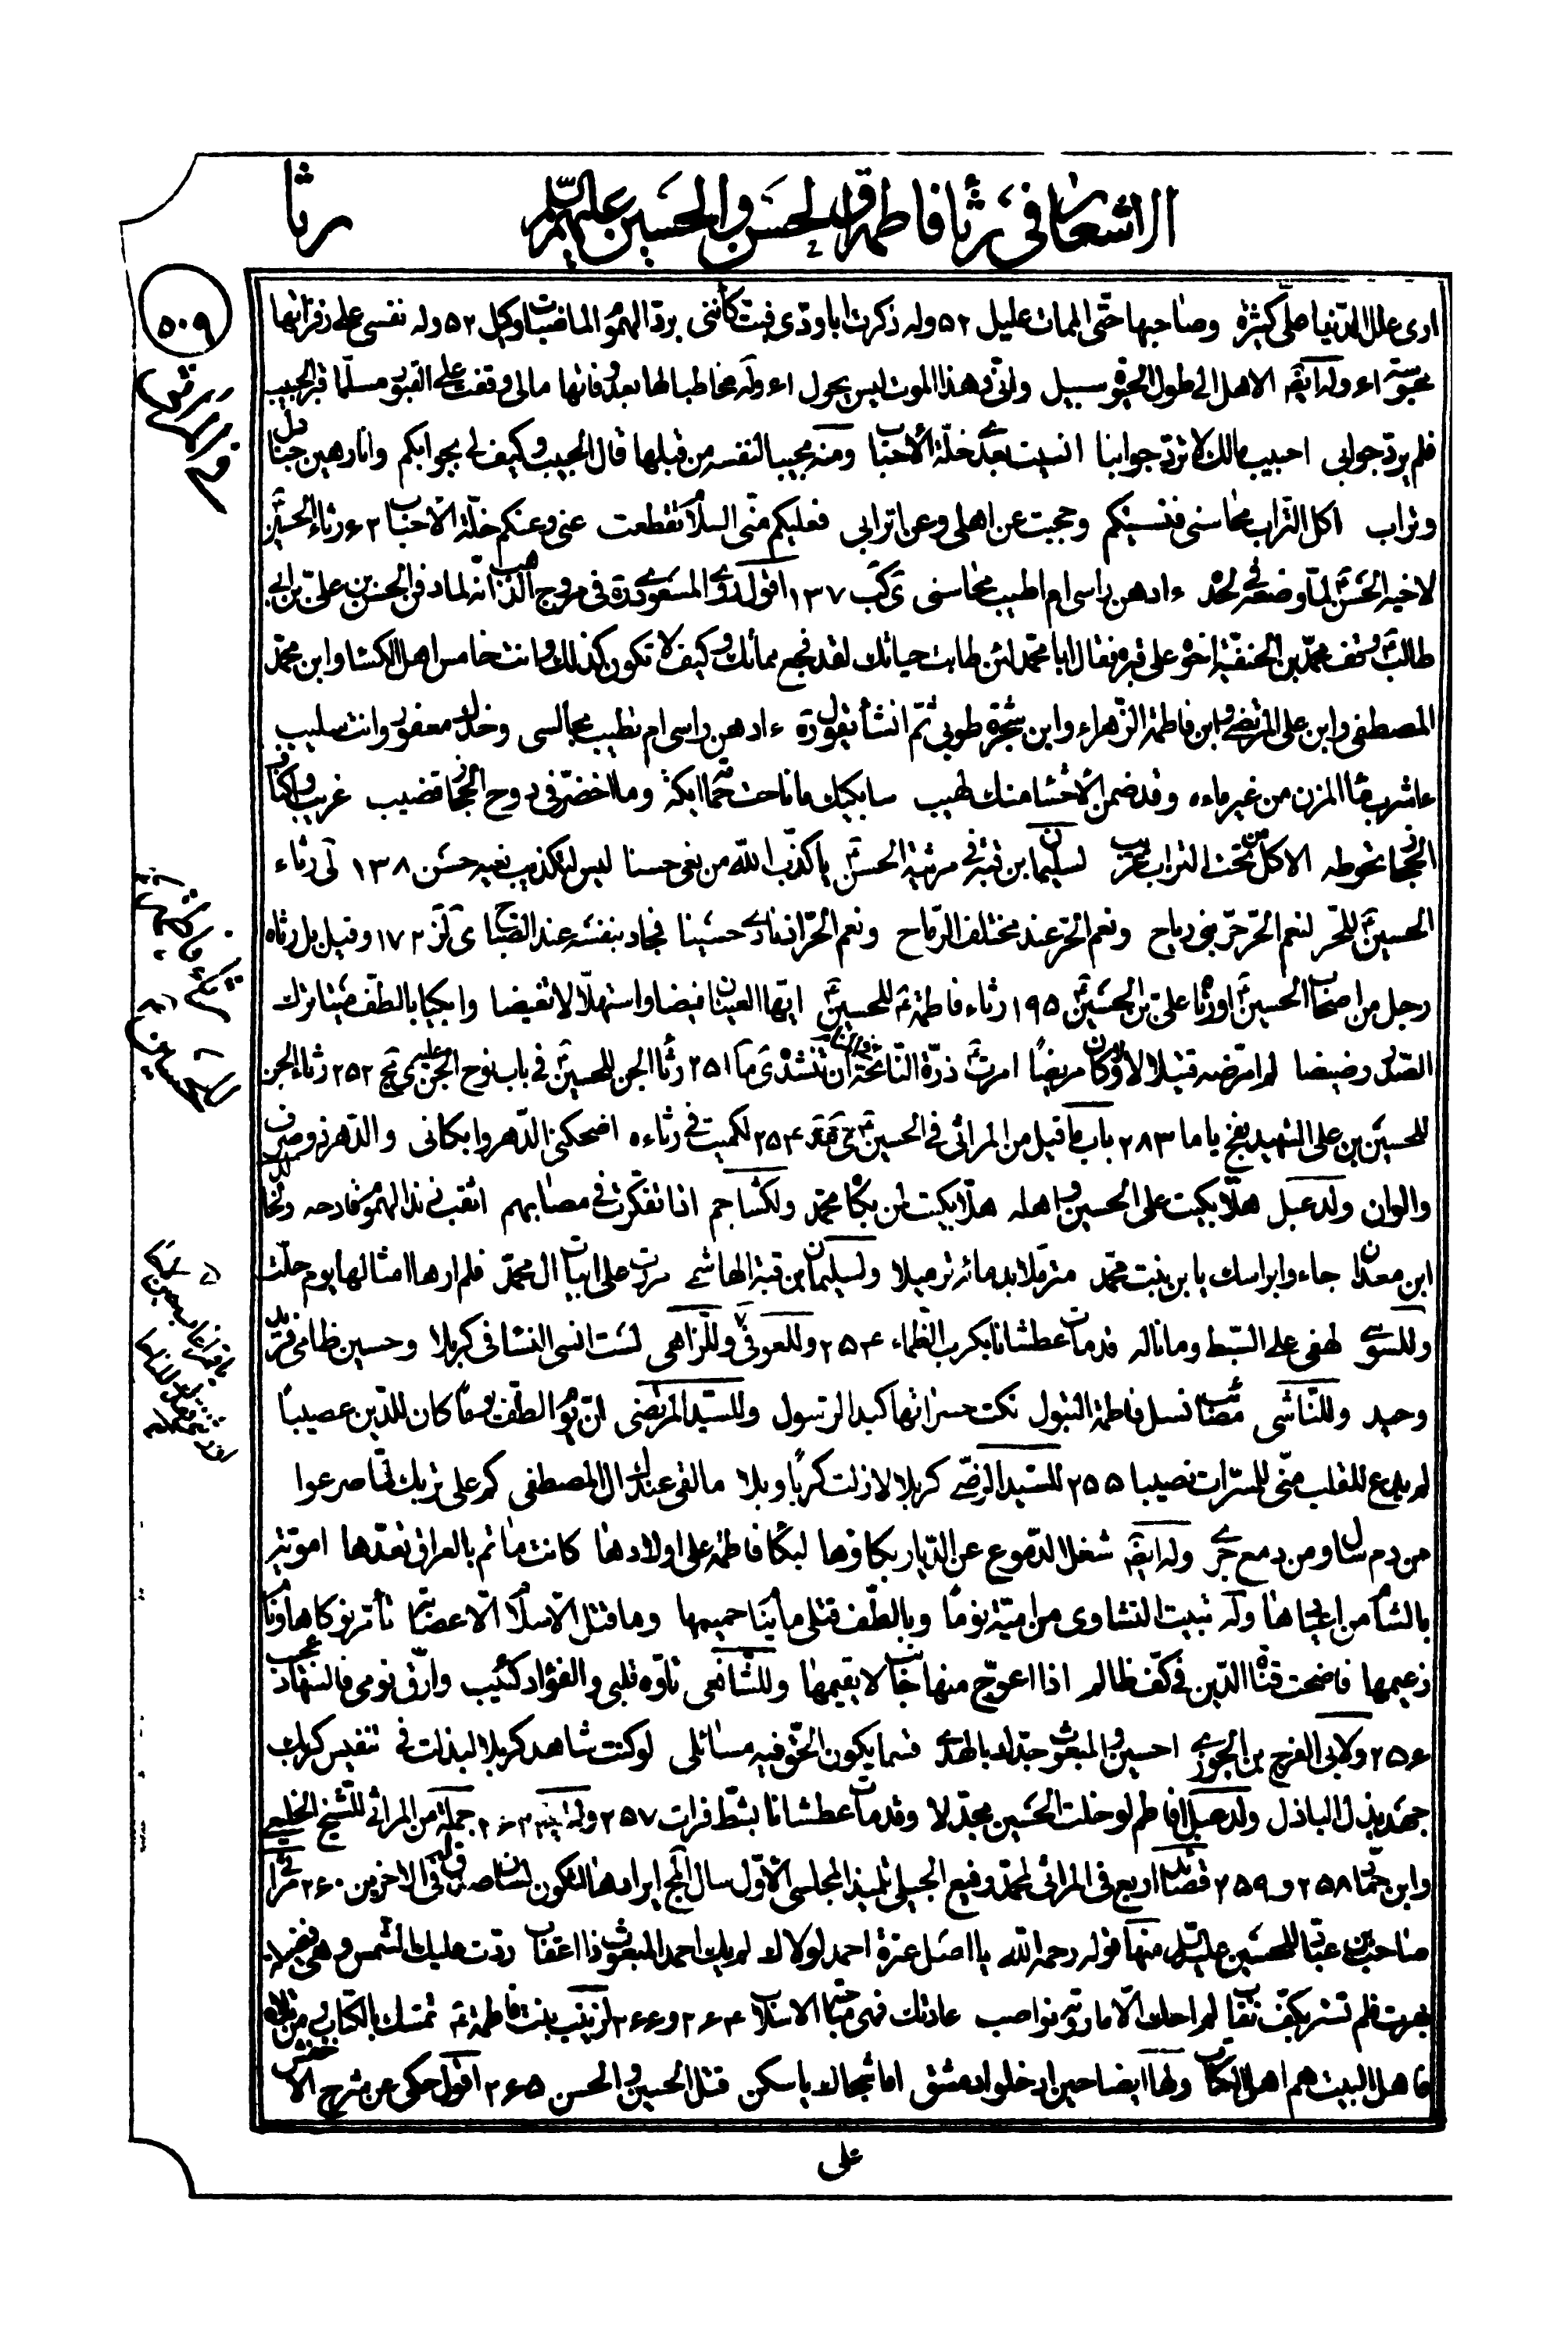 الاشعار في رثاء فاطمة والحسن والحسين عليهم السلام
رثا
٥٠٩
ارى علل الدنيا علىّ كثيرة وصاحبها حتّى الممات عليل ٥٢ وله ذكرت ابا ودّى فبتّ كأننى بردّ الهموم الماضيات وكيل ٥٢ وله نفسى على زفراتها
محبوسة ٤١ وله ايضا الا هل الى طول الحيوة سبيل وانّى وهذا الموت ليس يحول ٤١ وله مخاطبا لها بعد وفاتها مالى وقفت على القبور مسلّما قبر الحبيب
فلم يردّ جوابى احبيب مالك لا تردّ جوابنا انسيت بعدى خلّة الأحباب ومنه مجيبا لنفسه من قبلها قال الحبيب وكيف لى بجوابكم وانا رهين جنادل
وتراب اكل التراب محاسنى فنسيتكم وحجبت عن اهلى وعن اترابى فعليكم منّى السلام تقطعت عنى وعنكم خلّة الأحباب ٤٢ رثاء الحسين
لاخيه الحسن لمّا وضعه فى لحده ءادهن راسى ام اطيب محاسنى ى كب ١٣٧ اقول روى المسعودى ره فى مروج الذهب انّه لما دفن الحسن بن علىّ بن ابى
طالب وقف محمّد بن الحنفيّة اخوه على قبره فقال ابا محمّد لئن طابت حياتك لقد فجع مماتك وكيف لا تكون كذلك وانت خامس اهل الكساء وابن محمّد
المصطفى وابن على المرتضى وابن فاطمة الزّهراء وابن شجرة طوبى ثمّ انشأ يقول ره ءادهن راسى ام تطيب مجالسى وخدّك معفور وانت سليب
ءاشرب ماء المزن من غير ماءه وقد ضمن الأحشاء منك لهيب سابكيك ما ناحت حمامة ايكة وما اخضرّ فى دوح الحجاز قضيب غريب واكناف
الحجاز تحوطه الا كلّ من تحت التراب غريب لسليمان ابن قتة فى مرثية الحسن يا كذّب الله من نعى حسنا ليس لتكذيب نعيه حسن ١٣٨ لى رثاء
الحسين للحرّ لنعم الحرّ حرّ بنى رياح ونعم الحرّ عند مختلف الرّماح ونعم الحرّ اذ نادى حسينا فجاد بنفسه عند الصّباح ى لز ١٧٢ وقيل بل رثاه
رجل من اصحاب الحسين او رثاه علىّ بن الحسين ١٩٥ رثاء فاطمة للحسين ايّها العينان فيضا واستهلّا لا تغيضا وابكيا بالطفّ ميتا ترك
الصّدر رضيضا لم امرّضه قتيلا لا ولا كان مريضا امرت ذرّة النائحة ان تنشد ى ما ٢٥١ رثاء الجنّ للحسين فى باب نوح الجنّ عليه ى مج ٢٥٢ رثاء الجن
للحسين بن على الشهيد بفخ يا ما ٢٨٣ باب ما قيل من المراثى فى الحسين ى مد ٢٥٤ لكميت فى رثاءه اضحكنى الدّهر وابكانى والدّهر ذو صرف
والوان ولدعبل هلّا بكيت على الحسين واهله هلّا بكيت لمن بكاه محمّد ولكشاجم اذا تفكّرت فى مصابهم اثقب زند الهموم قادحه ولخالد
ابن معدان جاءوا براسك يا بن بنت محمّد متزمّلا بدمائه تزميلا ولسليمان بن قتة الهاشمى مررت على ابيات ال محمّد فلم ارها امثالها يوم حلّت
وللسوسى لهفى على السّبط وما ناله قد مات عطشانا بكرب الظماء ٢٥٤ وللعونى وللزاهى لست انسى النساء فى كربلا وحسين ظامى فريد
وحيد وللنّاشى مصائب نسل فاطمة البتول نكت حسراتها كبد الرسول وللسيّد المرتضى انّ يوم الطفّ يوما كان للدّين عصيبا
لم يدع للقلب منّى للمسرّات نصيبا ٢٥٥ للسيّد الرضى كربلا لا زلت كربا وبلا ما لقى عندك ال المصطفى كم على تربك لمّا صرعوا
من دم سال ومن دمع جرى وله ايضا شغل الدّموع عن الدّيار بكاؤها لبكاء فاطمة على اولادها كانت ماتم بالعراق تعدّها امويّة
بالشام من اعيادها وله تبيت النشاوى من اميّة نوما وبالطّف قتلى ما ينام حميمها وما قتل الاسلام الّا عصابة تأمّر نوكاها ونام
زعيمها فاضحت قناة الدّين فى كفّ ظالم اذا اعوجّ منها جانب لا يقيمها وللشافعى تاوّه قلبى والفؤاد كئيب وارّق نومى فالسّهاد عجيب
٢٥٦ ولابى الفرج بن الجوزى احسين والمبعوث جدّك بالهدى قسما يكون الحقّ فيه مسائلى لو كنت شاهد كربلا لبذلت فى تنفيس كربك
جهد بذل الباذل ولدعبل افاطم لو خلت الحسين مجدّلا وقد مات عطشانا بشطّ فرات ٢٥٧ جملة من المراثى للشيخ الخليعى
وابن حمّاد ٢٥٨ و ٢٥٩ قصائد اربع فى المراثى لمحمّد رفيع الجيلى تلميذ المجلسى الاوّل سال الحّ ايرادها لتكون لسان صدق له فى الاخرين ٢٦٠ مراثى
صاحب بن عبّاد للحسين عليه السّلام منها قوله رحمه الله يا اصل عترة احمد لولاك لم يك احمد المبعوث ذا اعقاب ردّت عليك الشمس وهى فضيلة
بهرت فلم تستر بكفّ نقاب لم احك الّا ما روته نواصب عادتك فهى مباحة الاسلاب ٢٦٤ و ٢٦٦ لزينب بنت فاطمة تمسّك بالكتاب ومن تلاه
فاهل البيت هم اهل الكتاب ولها ايضا حين ادخلوا دمشق اما شجاك يا سكن قتل الحسين والحسن ٢٦٥ اقول حكى عن شرح الاخفش
على